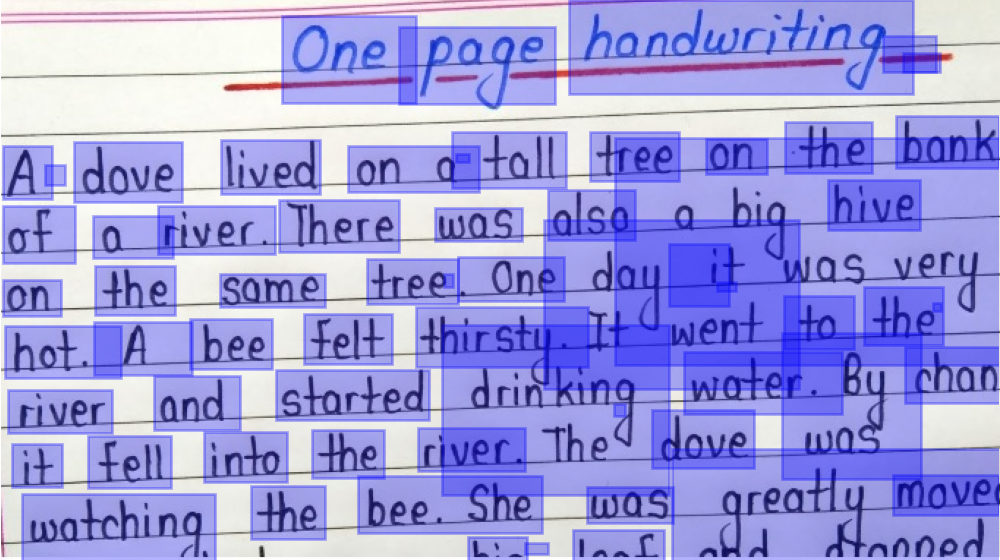 One page handwriting
A dove lived on a tall tree on the bank
of a river. There was also a big hive
on the same tree. One day it was very
hot. A bee felt thirsty. It went to the
river and started drinking water. By chan
it fell into the river. The dove was
watching the bee. She was greatly moved
big leaf and dropped